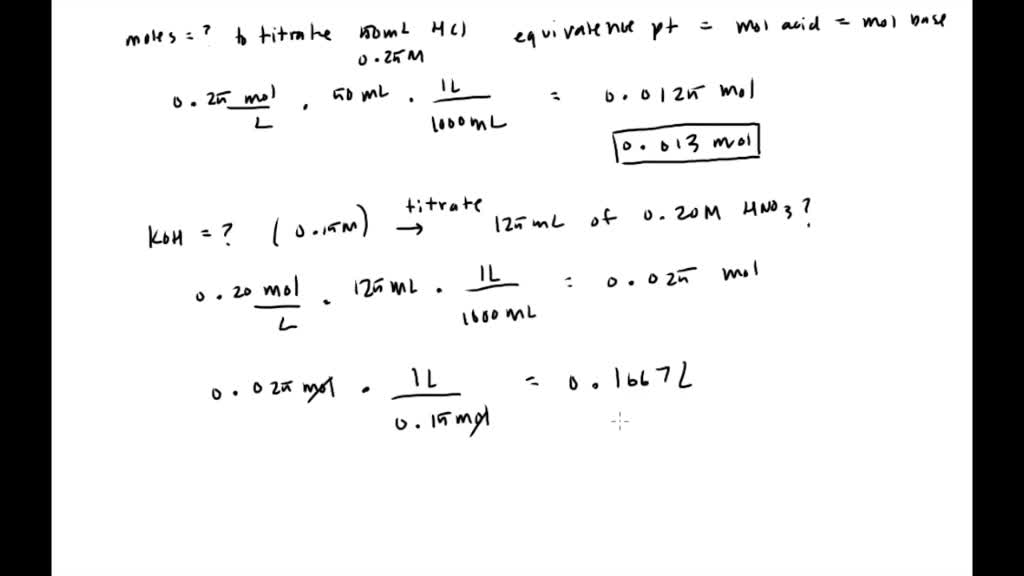 moles = ? to titrate 50mL HCl equivalence pt = mol acid = mol base
0.25M
0.25 mol/L . 50 mL . 1L/1000mL = 0.0125 mol
0.013 mol
KOH = ? (0.15M) titrate → 125mL of 0.20M HNO3?
0.20 mol/L . 125 mL . 1L/1000mL = 0.025 mol
0.025 mol . 1L/0.15 mol = 0.1667L